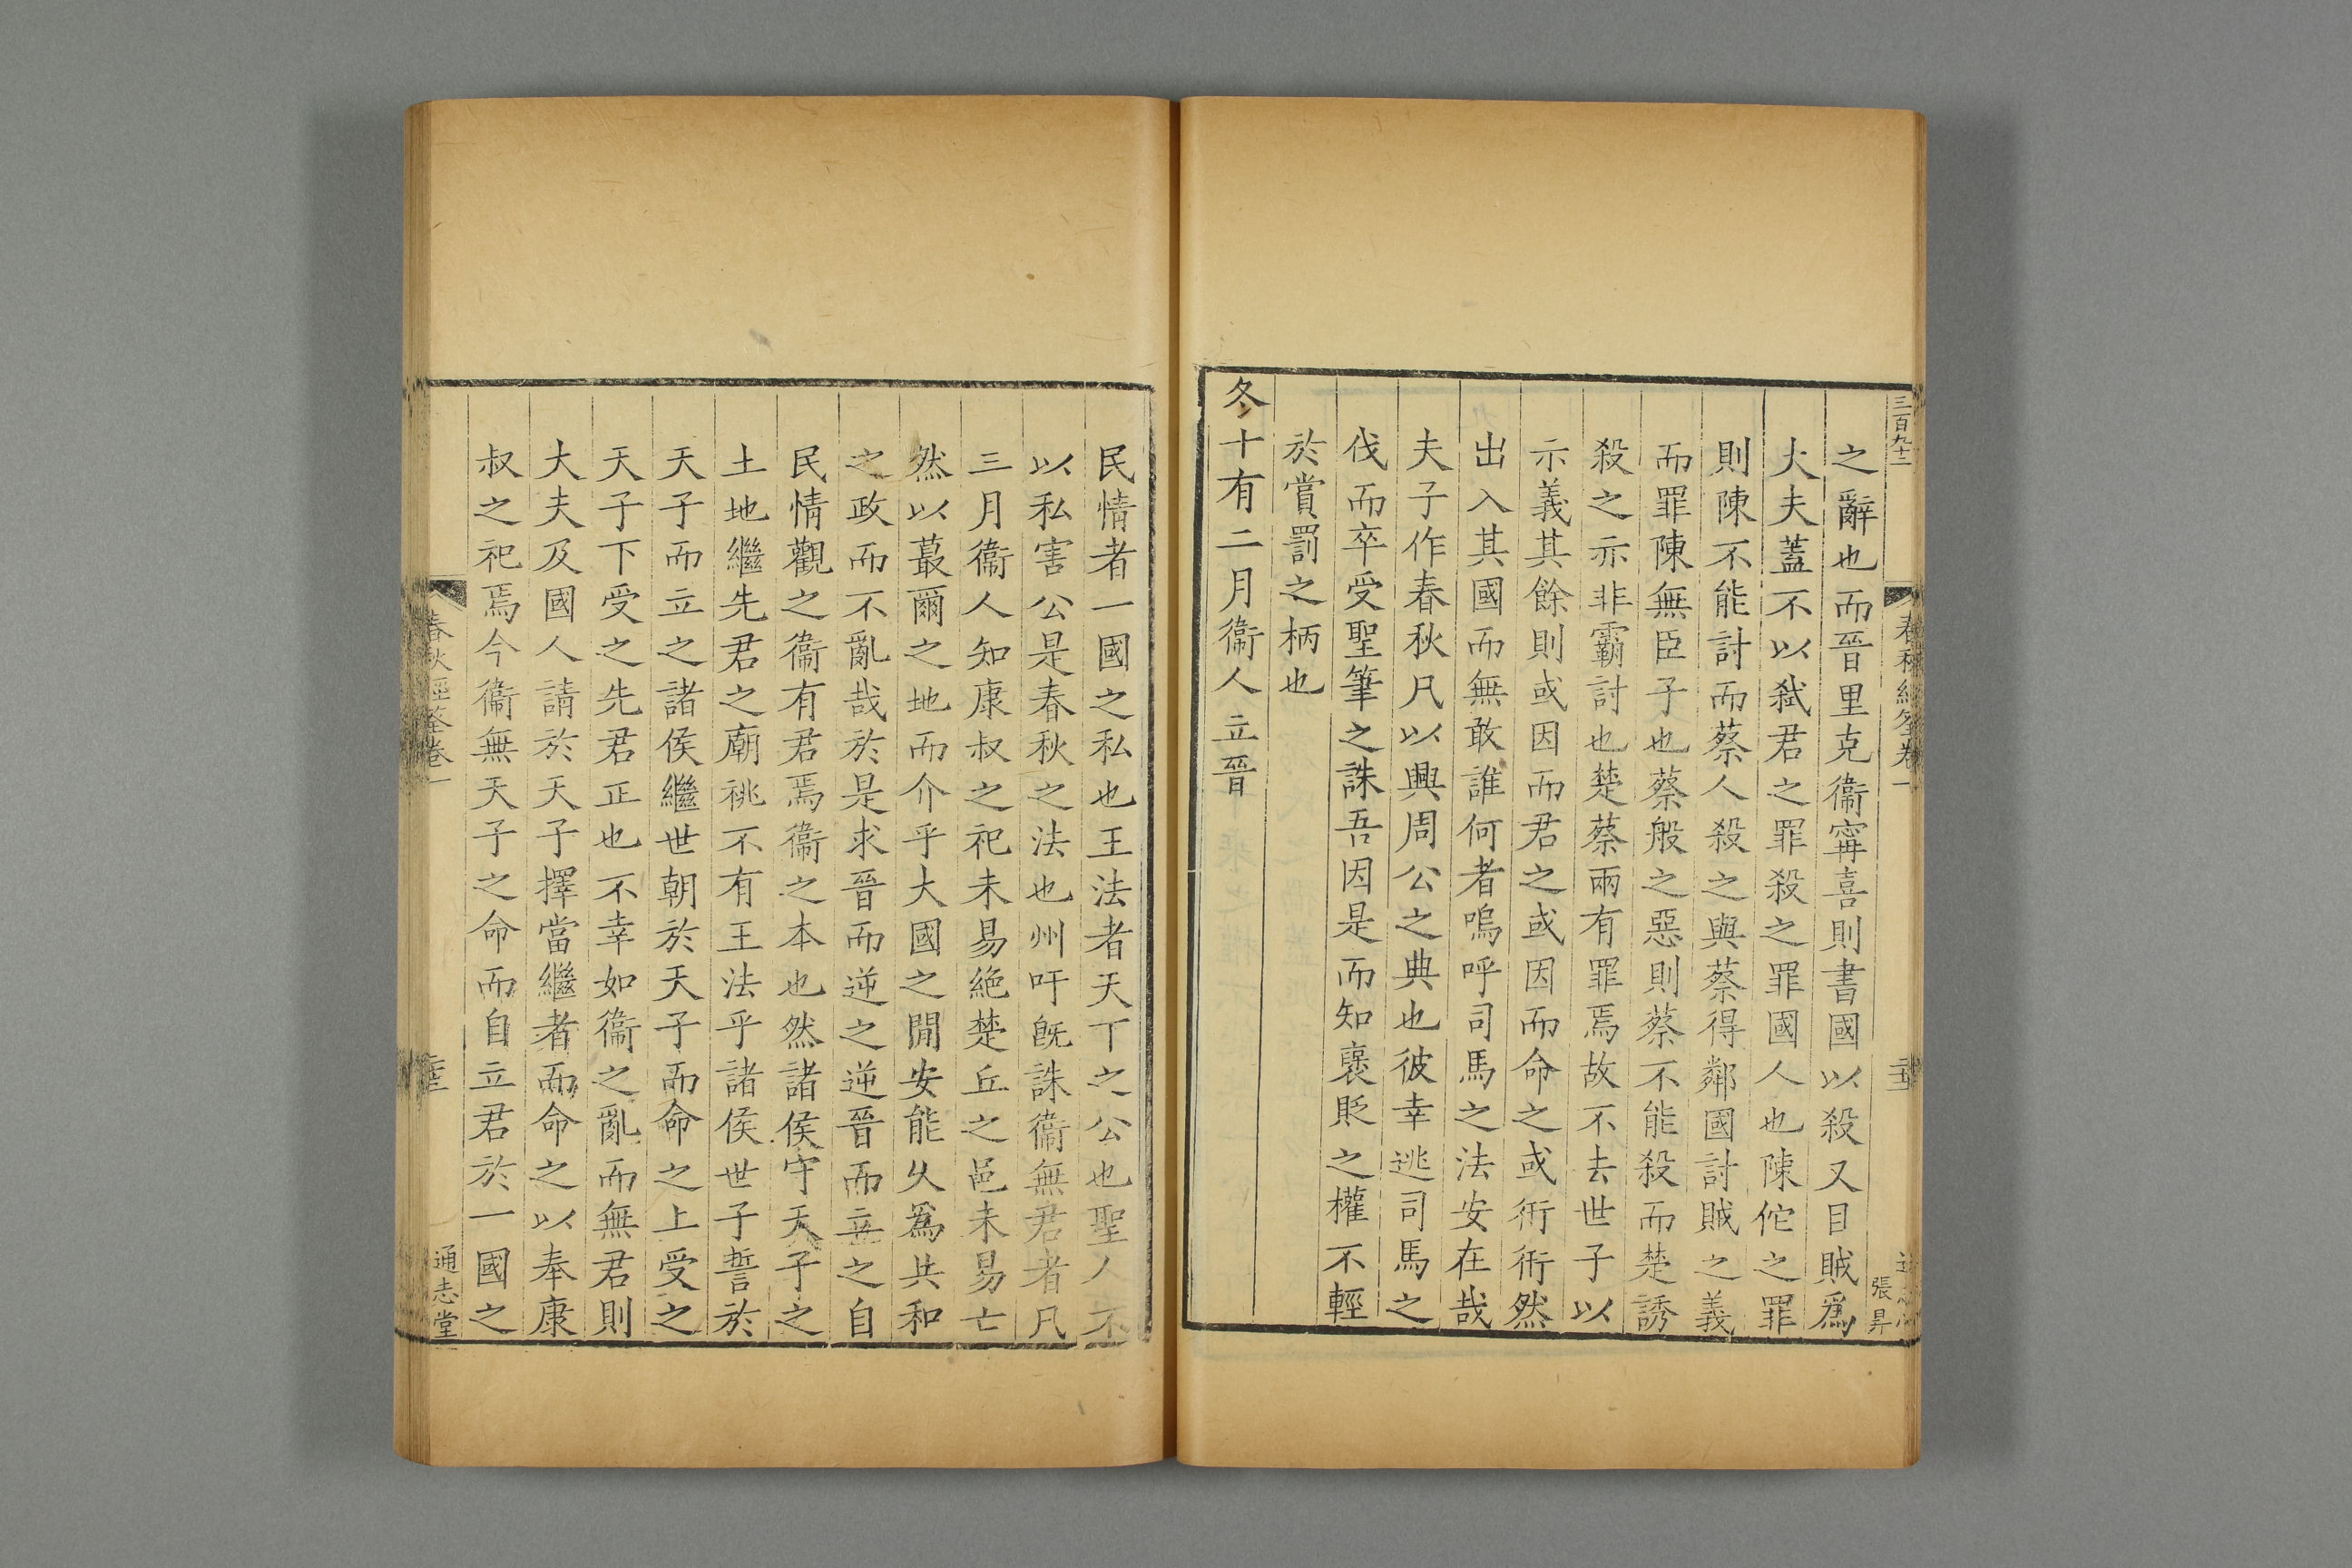 三百九十二
春秋經筌卷一
張昇
之辭也而晉里克衞寗喜則書國以殺又目賊爲
大夫蓋不以弑君之罪殺之罪國人也陳佗之罪
則陳不能討而蔡人殺之與蔡得鄰國討賊之義
而罪陳無臣子也蔡般之惡則蔡不能殺而楚誘
殺之示非霸討也楚蔡兩有罪焉故不去世子以
示義其餘則或因而君之或因而命之或衎衎然
出入其國而無敢誰何者嗚呼司馬之法安在哉
夫子作春秋凡以興周公之典也彼幸逃司馬之
伐而卒受聖筆之誅吾因是而知襃貶之權不輕
於賞罰之柄也
冬十有二月衞人立晉
民情者一國之私也王法者天下之公也聖人不
以私害公是春秋之法也州吁旣誅衞無君者凡
三月衞人知康叔之祀未易絶楚丘之邑未易亡
然以蕞爾之地而介乎大國之閒安能久爲共和
之政而不亂哉於是求晉而逆之逆晉而立之自
民情觀之衞有君焉衞之本也然諸侯守天子之
土地繼先君之廟祧不有王法乎諸侯世子誓於
天子而立之諸侯繼世朝於天子而命之上受之
天子下受之先君正也不幸如衞之亂而無君則
大夫及國人請於天子擇當繼者而命之以奉康
叔之祀焉今衞無天子之命而自立君於一國之
春秋經筌卷一
通志堂